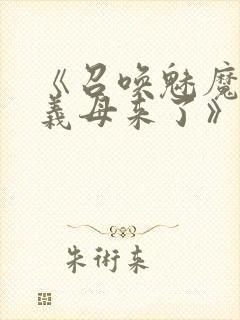 《召唤魅魔
義母来了》
朱術来